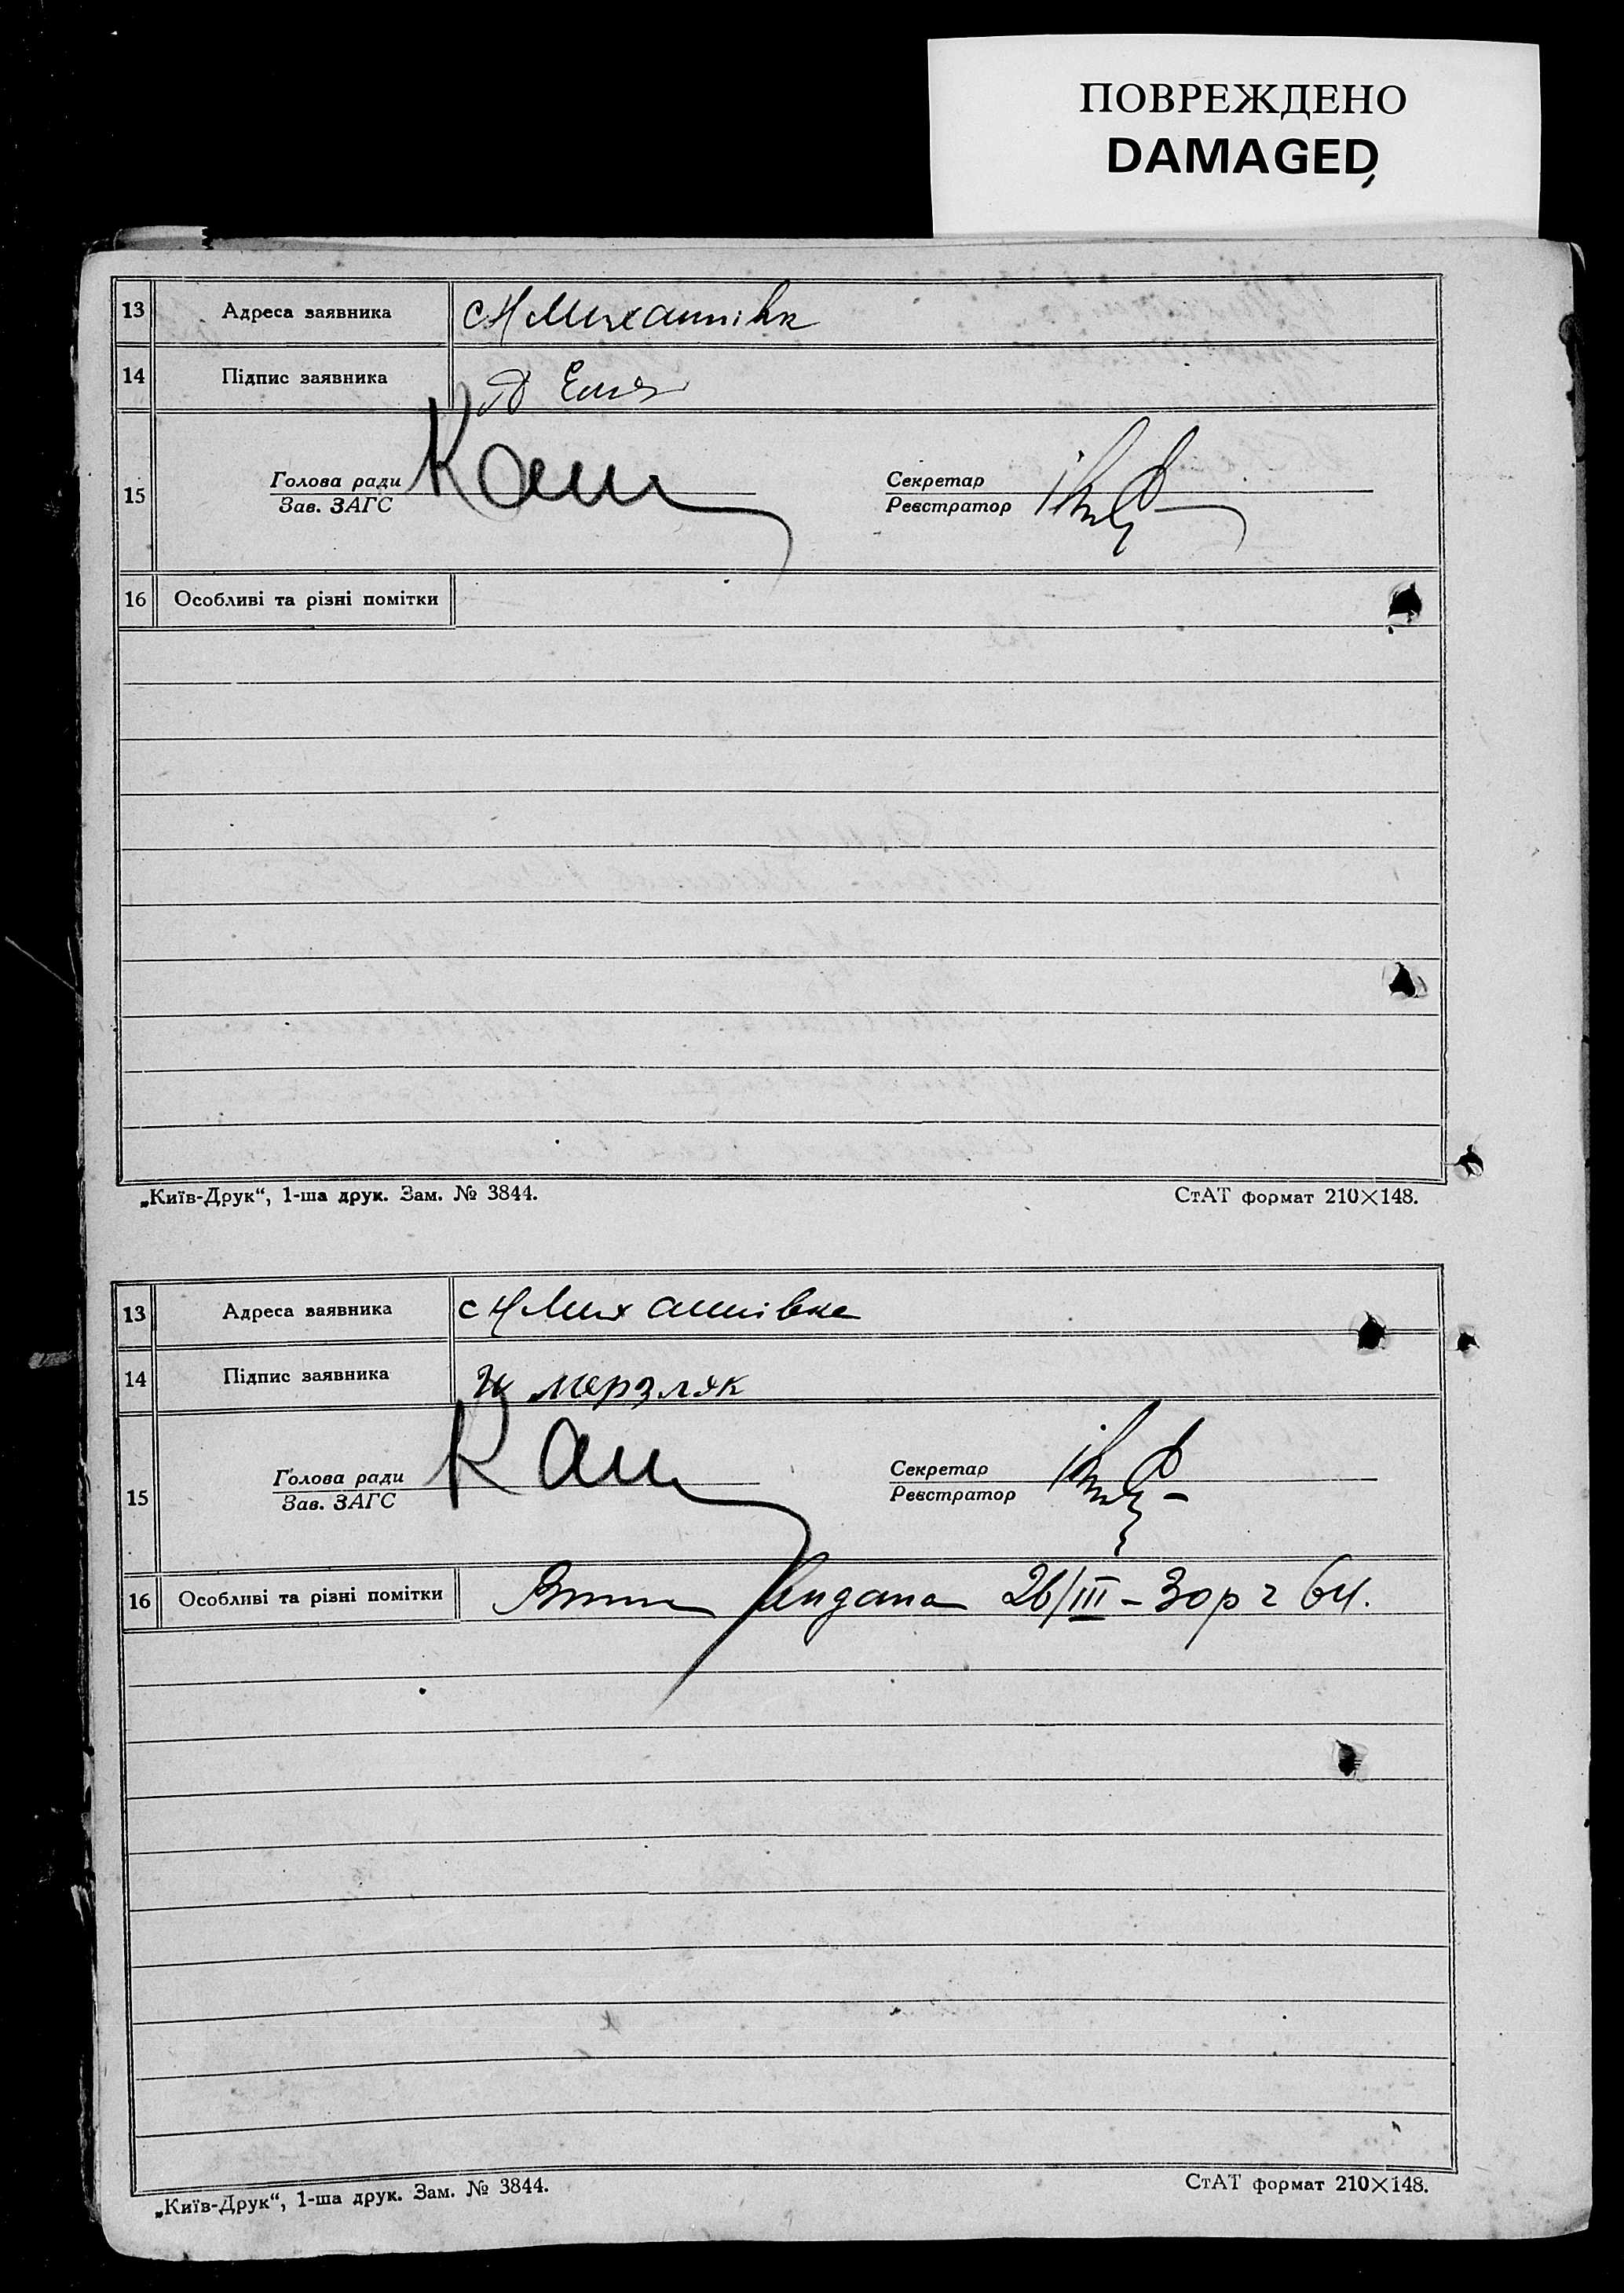 ПОВРЕЖДЕНО
DAMAGED
13 Адреса заявника с Н Михайлівк
14 Підпис заявника
15 Голова ради
Зав. ЗАГС
Секретар
Реєстратор
16 Особливі та різні помітки
„Київ-Друк“, 1-ша друк. Зам. № 3844. СтАТ формат 210×148.
13 Адреса заявника с Н Михайлівка
14 Підпис заявника мерзляк
15 Голова ради
Зав. ЗАГС
Секретар
Реєстратор
16 Особливі та різні помітки видана 26/III – 30 р
„Київ-Друк“, 1-ша друк. Зам. № 3844. СтАТ формат 210×148.